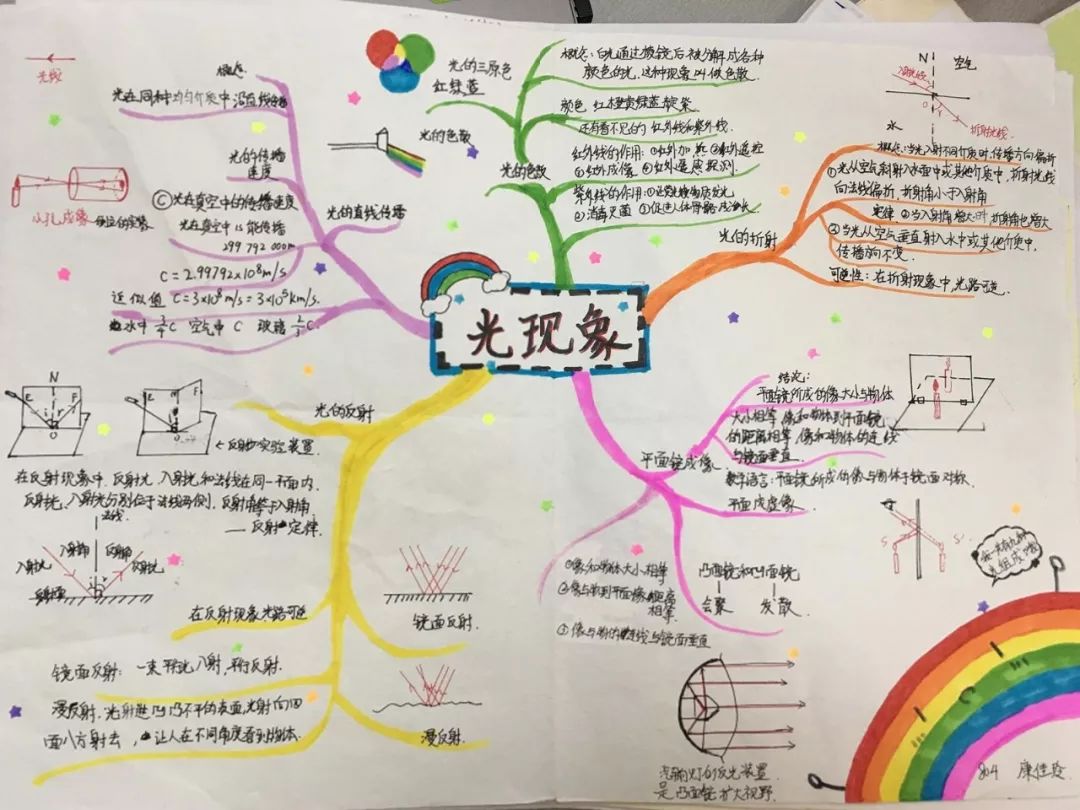 光现象
光线
概念:
光在同种均匀介质中沿直线传播
光的传播
速度
①光在真空中的传播速度
光在真空中
299 792 000m
C=2.99792×10⁸m/s
近似值 C=3×10⁸m/s=3×10⁵km/s.
水中 3/4C 空气中 C 玻璃 2/3C.
小孔成像
光的直线传播
光的三原色
红绿蓝
光的色散
光的色散
概念:白光通过棱镜后被分解成各种
颜色的光,这种现象叫做色散.
颜色 红橙黄绿蓝靛紫
还有看不见的 红外线和紫外线.
红外线的作用:①红外加热 ②红外遥控
③红外成像 ④红外遥感探测.
紫外线的作用:①使荧光物质发光
②消毒灭菌 ③促进人体骨骼成长
光的折射
N
空气
入射光线
O
水
折射光线.
概念:当光入射不同介质时,传播方向偏折
①光从空气斜射入水面中或其他介质中,折射光线
向法线偏折,折射角小于入射角
定律. ②当入射角增大时 折射角也增大
②当光从空气垂直射入水中或其他介质中,
传播方向不变.
可逆性:在折射现象中,光路可逆.
光的反射
N
E
F
i
r
O
E
N
F
O
←反射实验装置.
在反射现象中.反射光 入射光和法线在同一平面内.
反射光、入射光分别位于法线两侧. 反射角等于入射角
——反射定律.
法线.
入射光
入射角
反射角
反射光
在反射现象光路可逆
镜面反射.
镜面反射: 一束平行光入射,平行反射.
漫反射.光射进凹凸不平的表面,光射向四
面八方射去, 让人在不同角度看到物体.
漫反射.
平面镜成像.
结论:
平面镜所成的像大小与物体
大小相等 像和物体到平面镜
的距离相等,像和物体的连线
与镜面垂直.
数学语言:平面镜所成的像与物体于镜面对称.
平面成虚像.
①像和物体大小相等
相等.
凸面镜和凹面镜
会聚 发散.
S
S'
汽车灯的反光装置
是凸面镜 扩大视野.
804 康佳玲